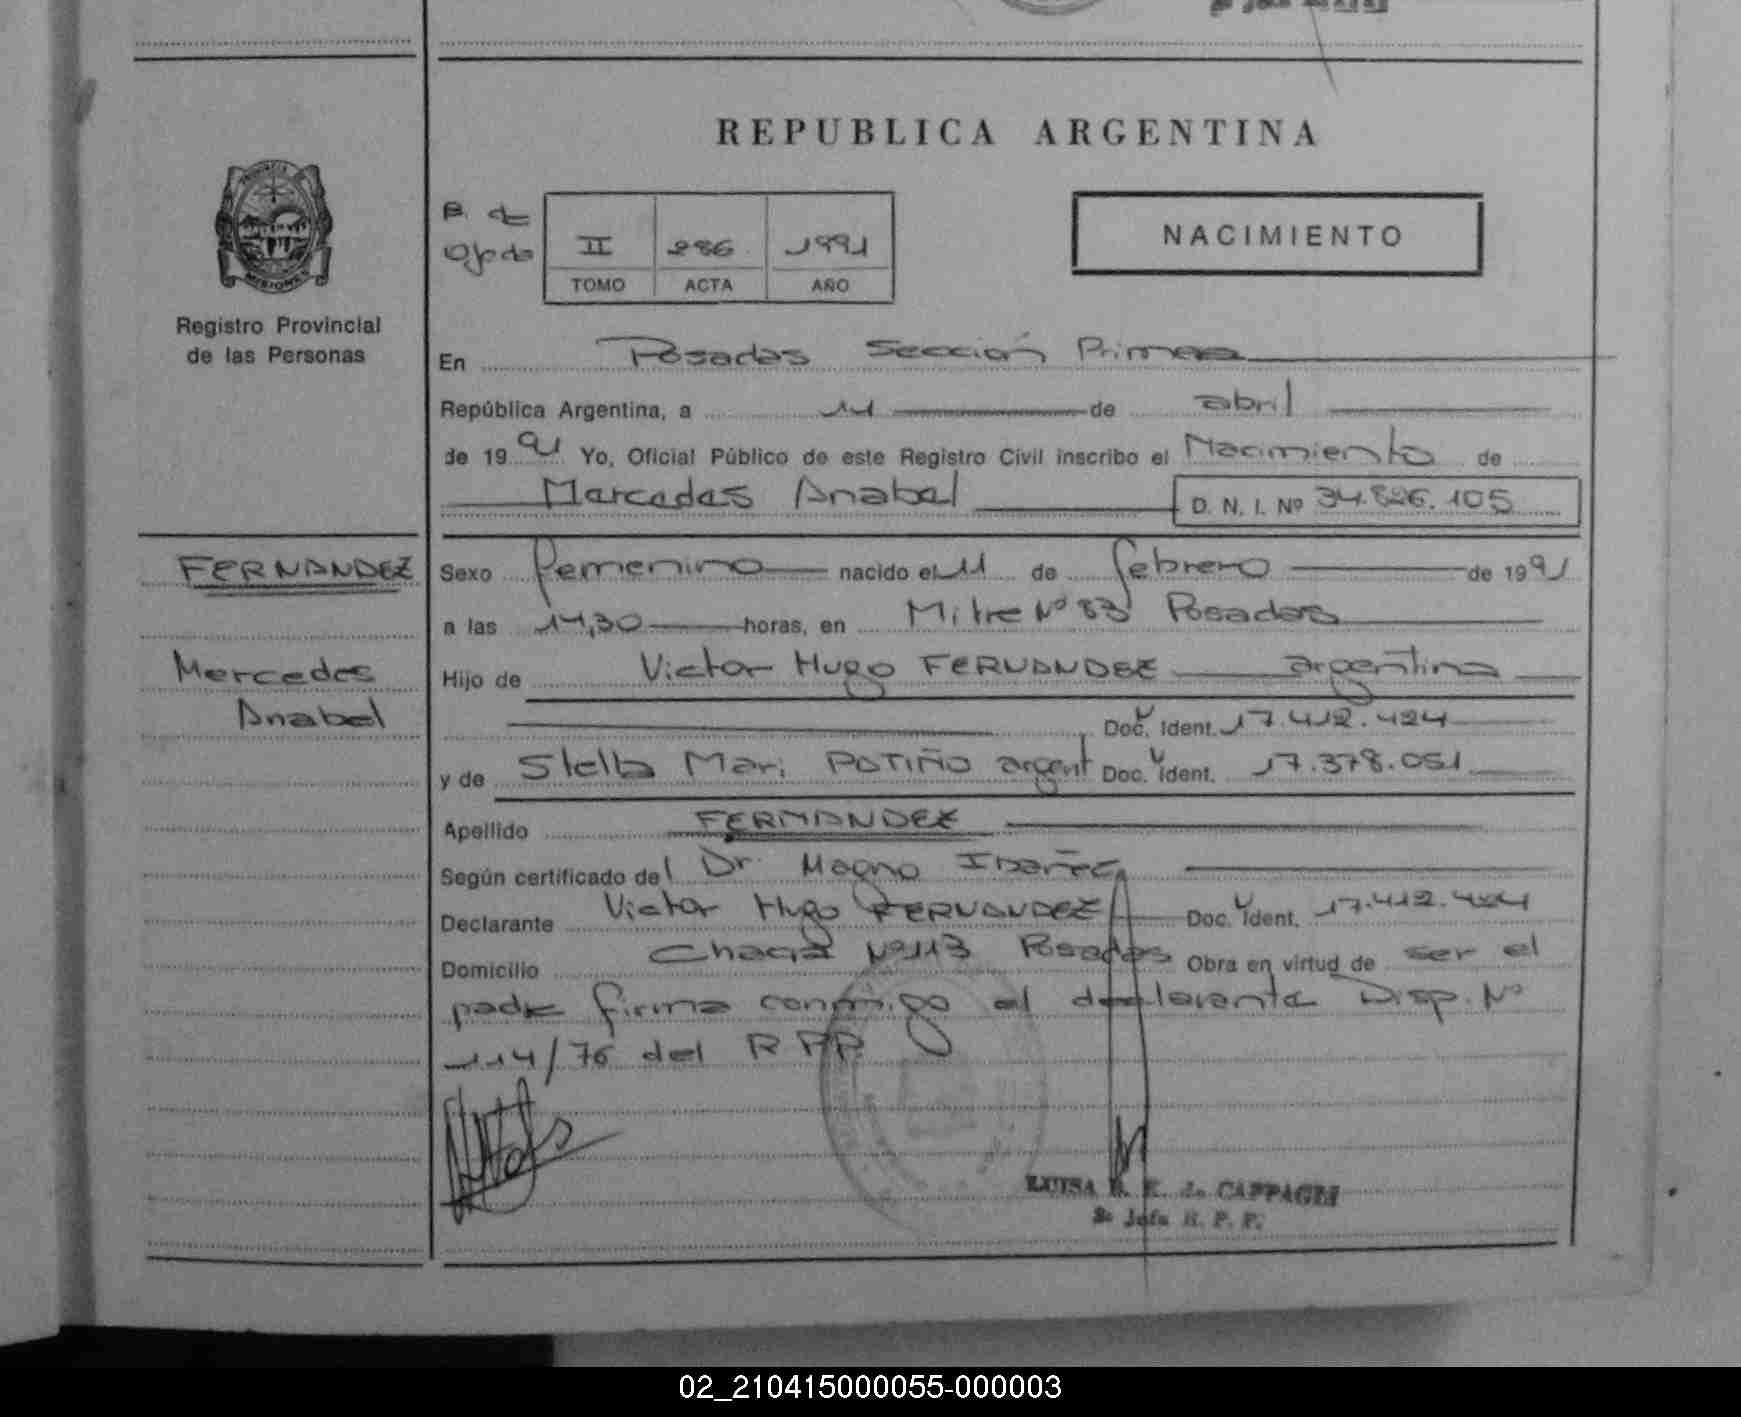 REPUBLICA ARGENTINA
Registro Provincial
de las Personas
B. de
Ojeda
II 286 1991
TOMO ACTA AÑO
NACIMIENTO
En Posadas Sección Primera
República Argentina, a 11 de abril
de 1991 Yo, Oficial Público de este Registro Civil inscribo el Nacimiento de
Mercedes Anabel D. N. I. Nº 34.826.105
FERNANDEZ
Mercedes
Anabel
Sexo femenino nacido el 11 de febrero de 1991
a las 14,30 horas, en Mitre Nº 83 Posadas
Hijo de Victor Hugo FERNANDEZ argentino
Doc. Ident. 17.412.424
y de Stella Mari PATIÑO argent Doc. Ident. 17.378.051
Apellido FERNANDEZ
Según certificado del Dr. Magno Ibañez
Declarante Victor Hugo FERNANDEZ Doc. Ident. 17.412.424
Domicilio Chacra Nº 113 Posadas Obra en virtud de ser el
padre firma conmigo el declarante Disp. Nº
114/76 del R.P.P.
LUISA de CAPPAGLI
Jefa R. P. P.
02_210415000055-000003